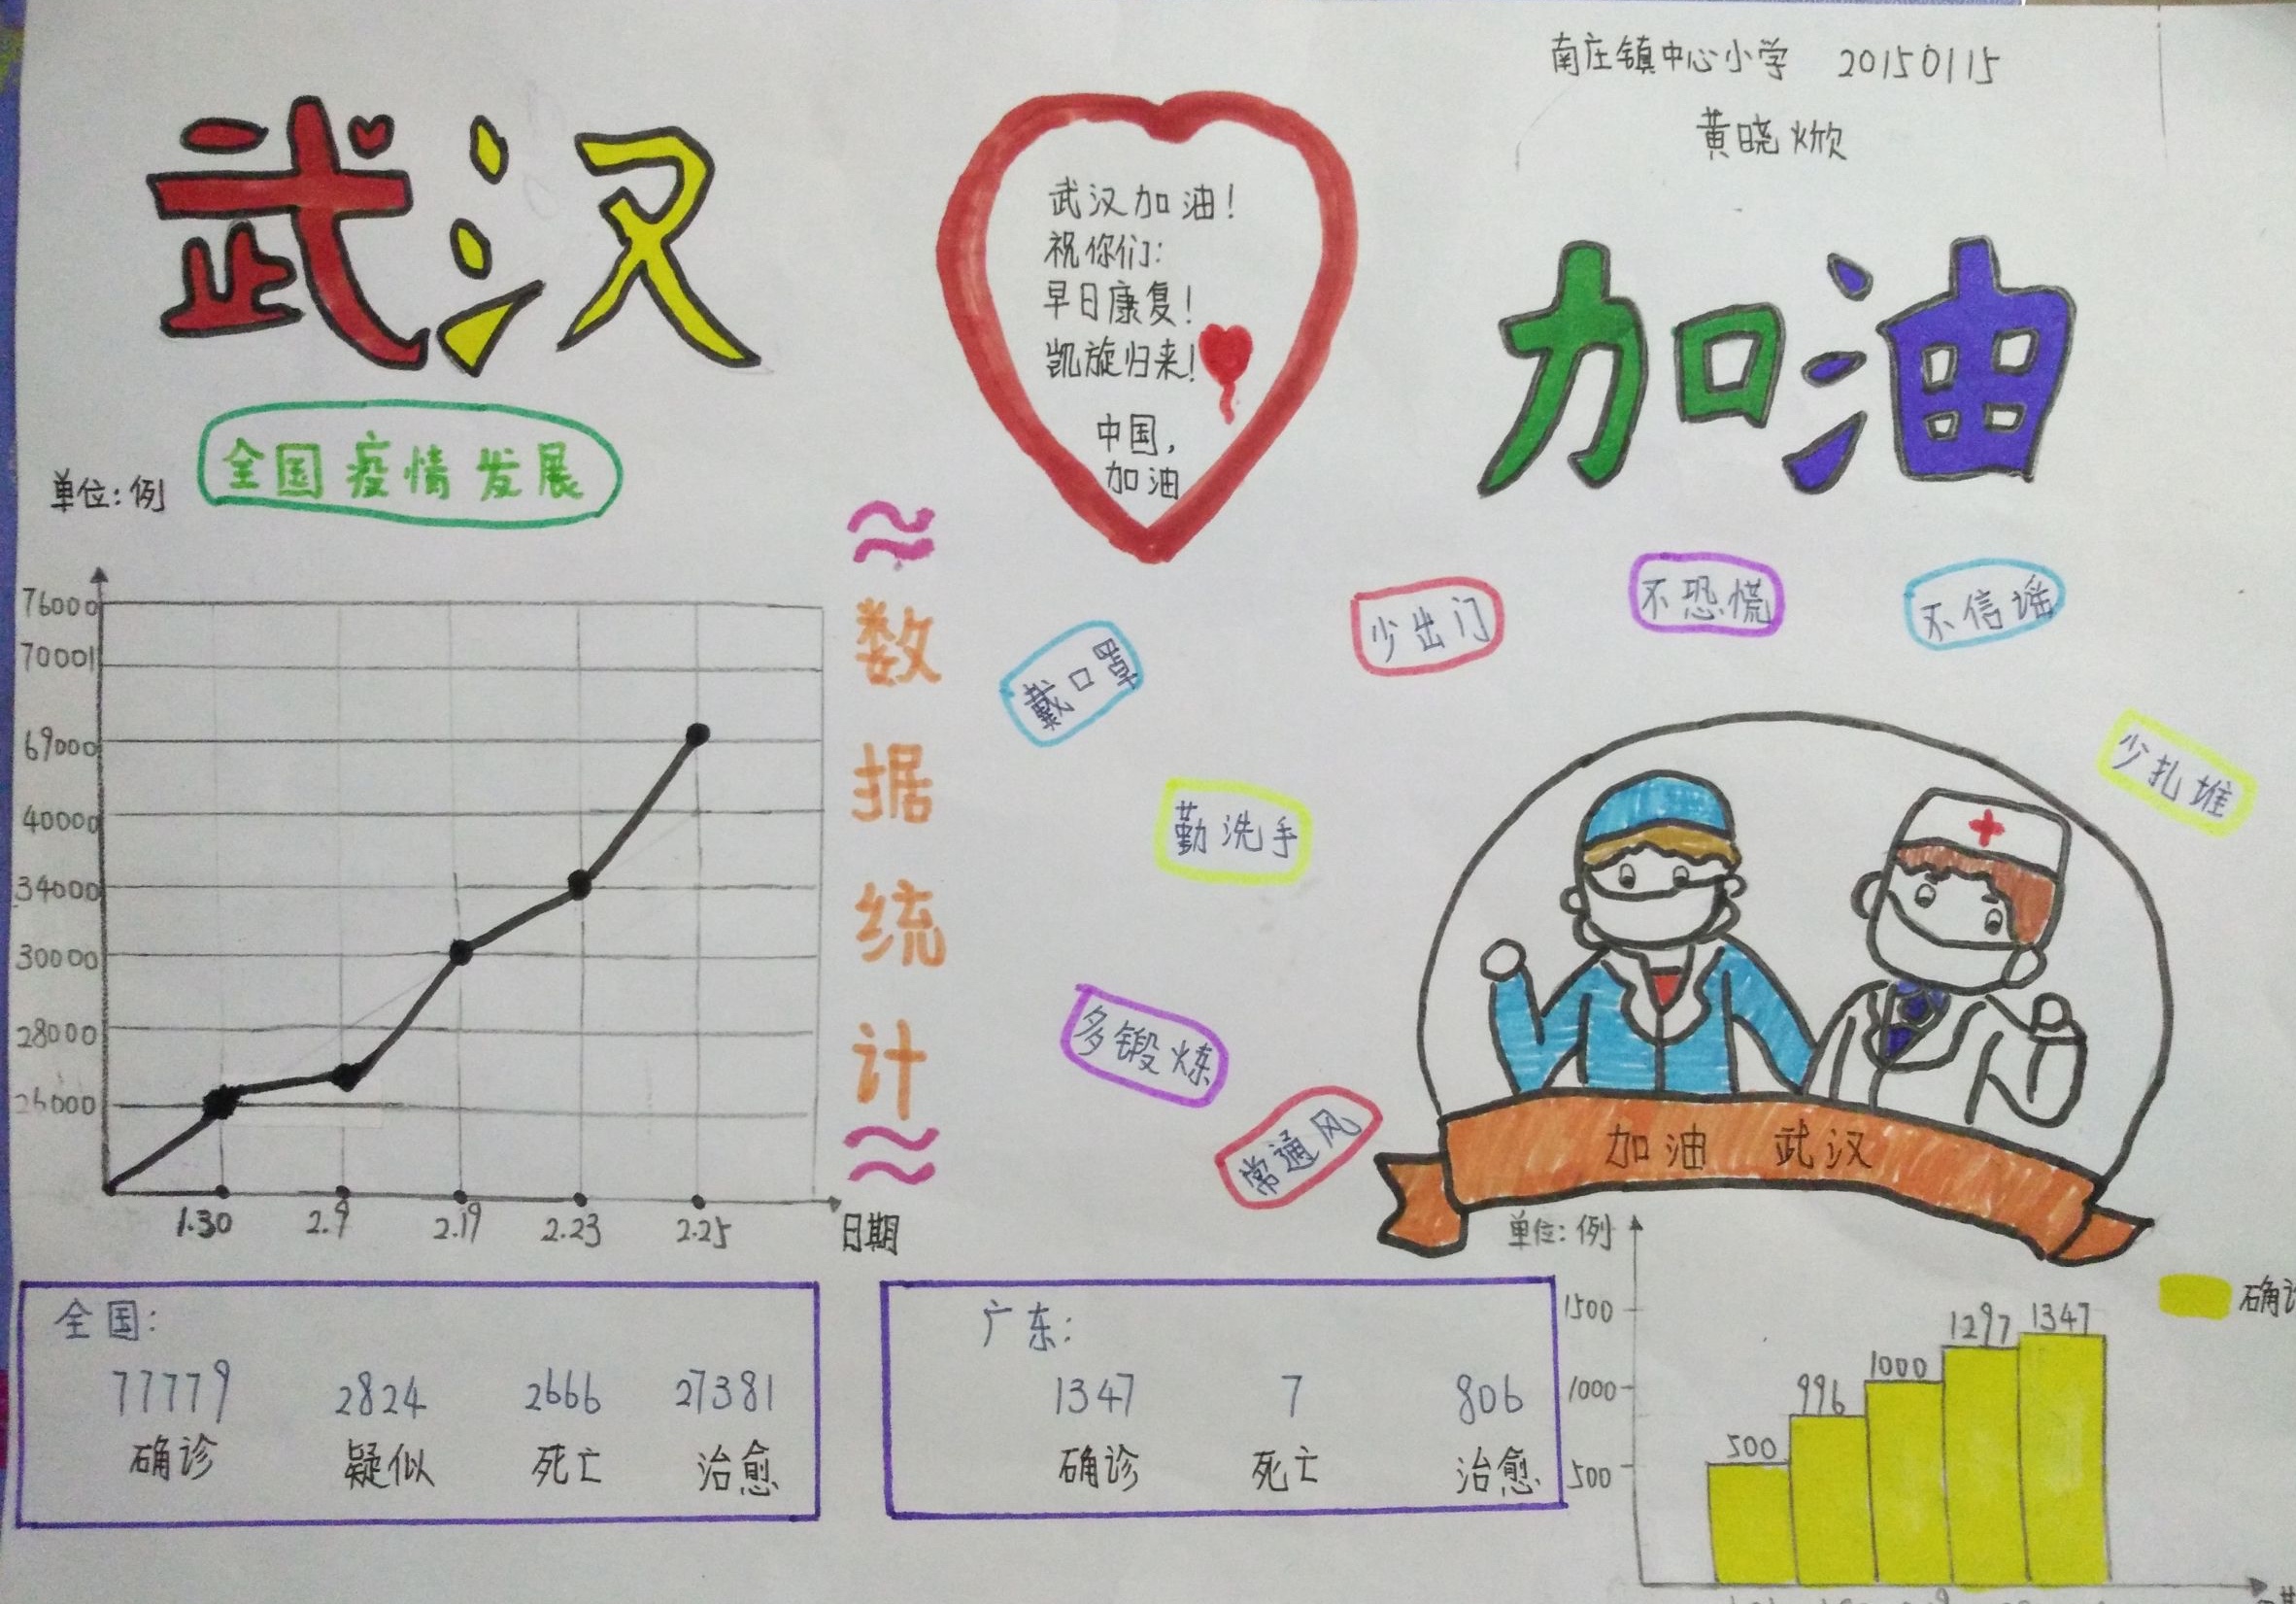 南庄镇中心小学 20150115
黄晓焮
武汉
加油
武汉加油！
祝你们：
早日康复！
凯旋归来！
中国，
加油
全国疫情发展
单位：例
76000
70001
69000
40000
34000
30000
28000
26000
1.30 2.9 2.19 2.23 2.25 日期
数据统计
戴口罩
少出门
不恐慌
不信谣
少扎堆
勤洗手
多锻炼
常通风
加油 武汉
全国：
77779 2824 2666 27381
确诊 疑似 死亡 治愈
广东：
1347 7 806
确诊 死亡 治愈
单位：例
1500
1000
500
500 996 1000 1297 1347
确